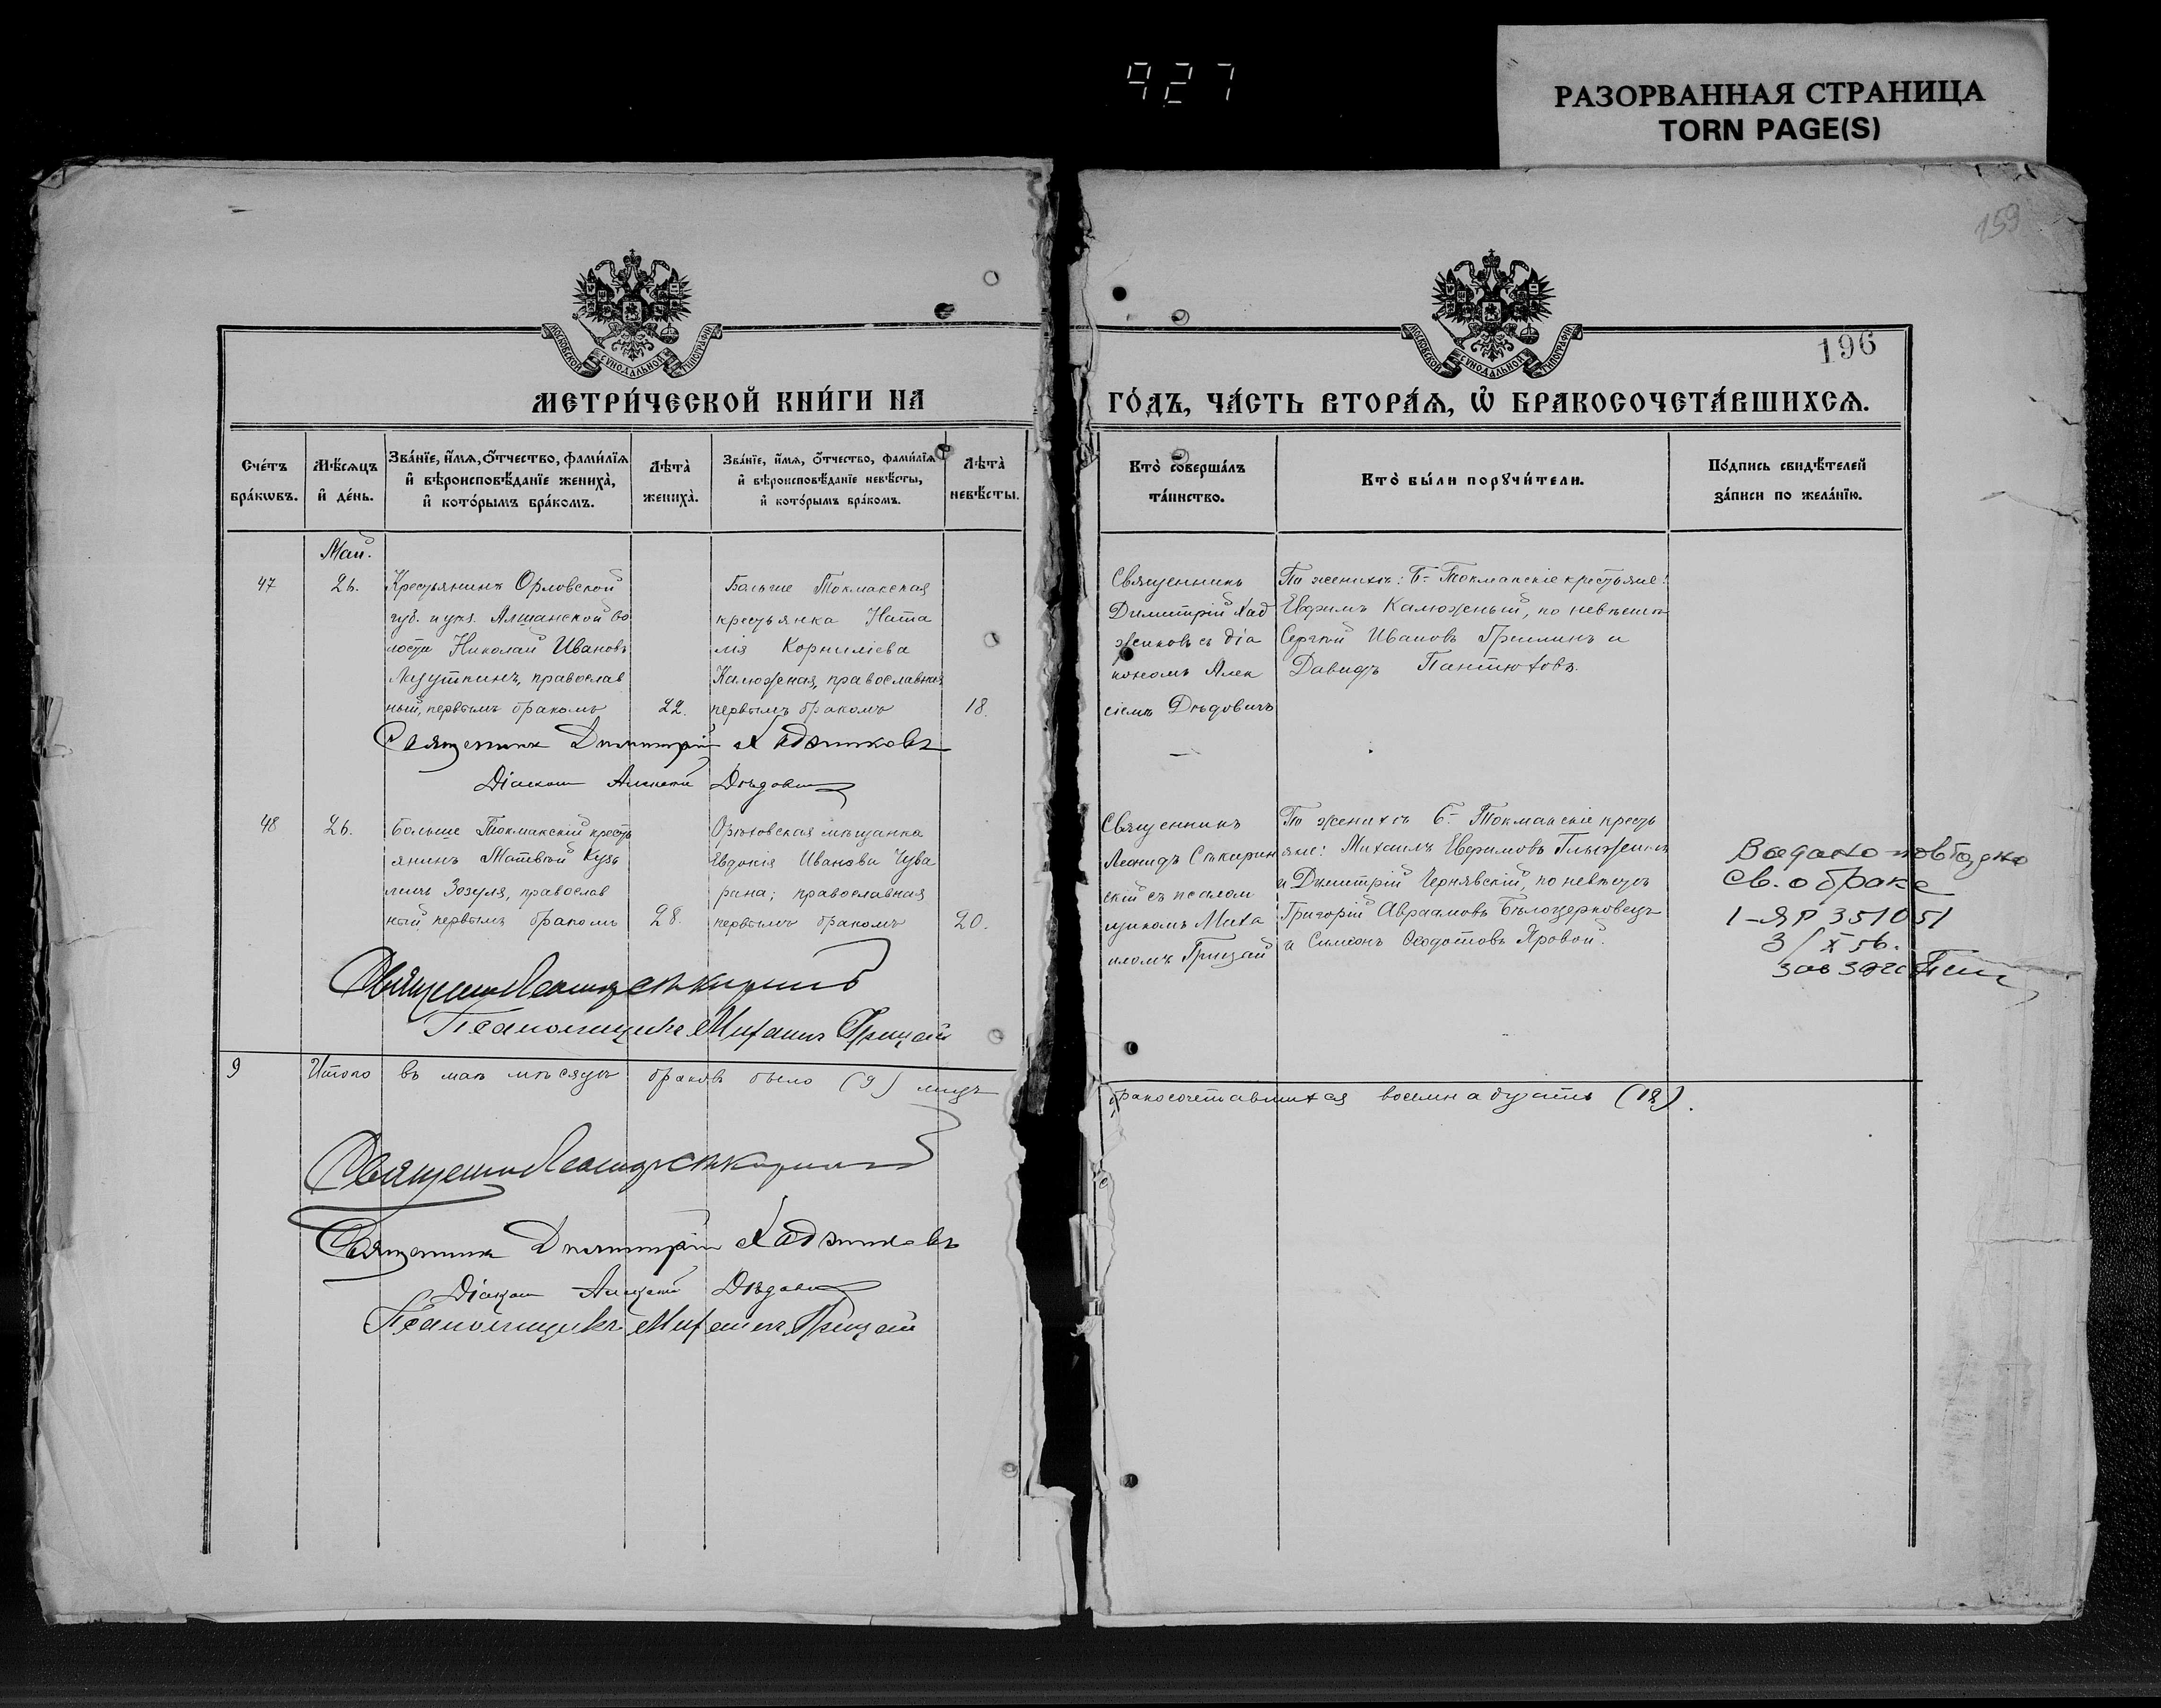 927
РАЗОРВАННАЯ СТРАНИЦА
TORN PAGE(S)
159
МОСКОВСКОЙ СУНОДАЛЬНОЙ ТИПОГРАФІИ
МОСКОВСКОЙ СУНОДАЛЬНОЙ ТИПОГРАФІИ
196
МЕТРИ́ЧЕСКОЙ КНИ́ГИ НА
ГО́ДЪ, ЧА́СТЬ ВТОРА́Я, Ѡ БРАКОСОЧЕТА́ВШИХСЯ.
Сче́тъ бра́кѡвъ.
Мѣ́сяцъ и де́нь.
Зва́нїе, и́мя, о́тчество, фами́лїя
и вѣроисповѣ́данїе жениха̀,
и кото́рымъ бра́комъ.
Лѣта̀ жениха̀.
Зва́нїе, и́мя, о́тчество, фами́лїя
и вѣроисповѣ́данїе невѣ́сты,
и кото́рымъ бра́комъ.
Лѣта̀ невѣ́сты.
Кто̀ соверша́лъ
та́инство.
Кто̀ бы́ли порꙋчи́тели.
По́дпись свидѣ́телей
за́писи по жела́нїю.
Май.
47
26.
Крестьянинъ Орловской
губ. и уѣз. Алшанской во
лости Николай Ивановъ
Лазуткинъ, православ
ный, первымъ бракомъ
22.
Больше Токмакская
крестьянка Ната
лія Корниліева
Калюжная, православная
первымъ бракомъ
18.
Священникъ
Димитрій Хад
жиковъ съ діа
кономъ Алек
сіемъ Дѣдовичъ
По женихѣ: Б-Токмакскіе крестьяне:
Евфимъ Калюжный, по невѣстѣ
Сергѣй Ивановъ Гришинъ и
Давидъ Пантюховъ.
Священникъ Димитрій Хаджиковъ
Діаконъ Алексѣй Дѣдович
48
26.
Больше Токмакскій кресть
янинъ Матвѣй Кузь
минъ Зозуля, православ
ный первымъ бракомъ
28.
Орѣховская мѣщанка
Евдокія Иванова Чува
рина; православная
первымъ бракомъ
20.
Священникъ
Леонидъ Сѣкирин
скій съ псалом
щикомъ Миха
иломъ Грицай
По женихѣ Б-Токмакскіе кресть
яне: Михаилъ Евфимовъ
и Димитрій Чернявскій, по невѣстѣ
Григорій Авраамовъ Бѣлоцерковецъ
и Симеонъ Ѳеодотовъ Яровой.
Выдано повторно
св. о браке
1-ЯР 351051
3/X 56.
зав загс
Священникъ Леонидъ Сѣкиринскій
Псаломщикъ Михаилъ Грицай
9
Итого въ маѣ мѣсяцѣ браковъ было (9) лицъ
бракосочетавшихся восемнадцать (18).
Священникъ Леонидъ Сѣкиринскій
Священникъ Димитрій Хаджиковъ
Діаконъ Алексѣй Дѣдович
Псаломщикъ Михаилъ Грицай